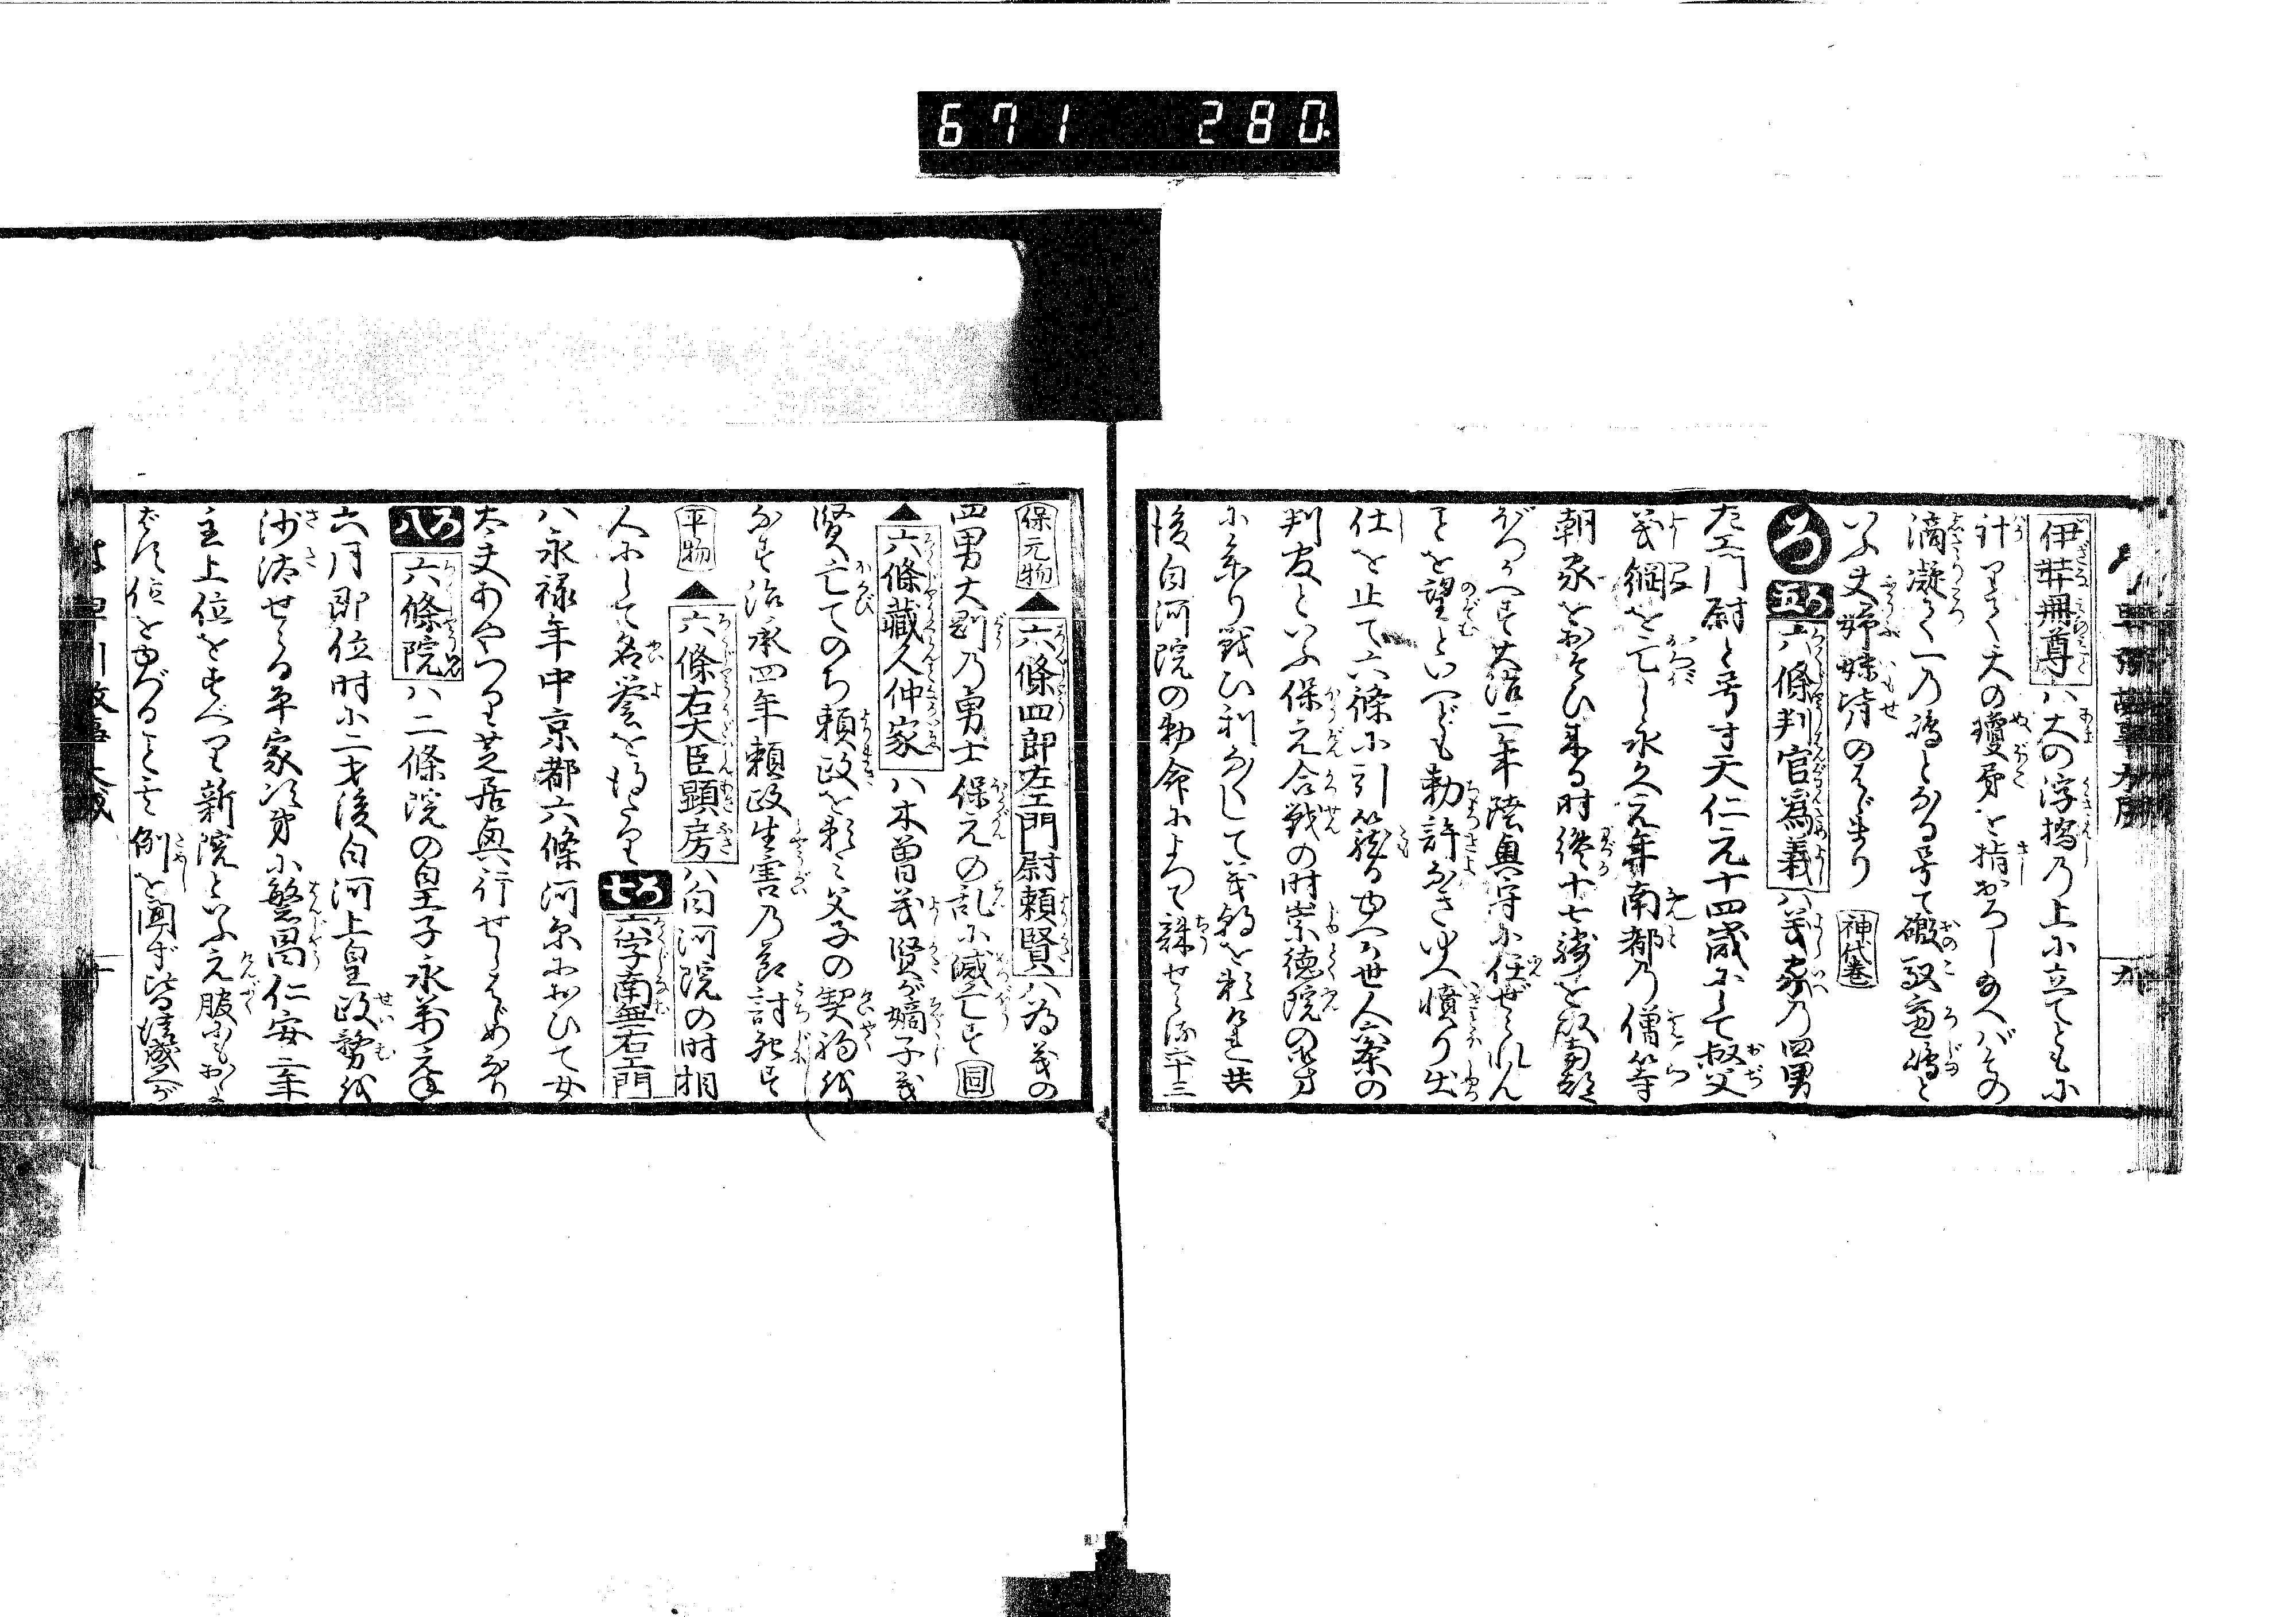 671 280
伊弉冊尊ハ天の浮橋乃上に立てともに
計りて天の瓊矛を指おろし給へバその
滴凝て一の嶋となる号て磤馭盧嶋と
いふ夫婦妹背のはじまり 神代巻
ろ 五ろ 六條判官爲義ハ義家乃四男
左エ門尉と号す天仁元十四歳にして叔父
義綱を亡し永久元年南都乃僧等
朝家をおそひ来る時纔十七騎を
大治二年陸奥守に任ぜられん
ことを望といへども勅許なきゆへ憤り出
仕を止て六條に引篭るゆへ世人六条の
判官といふ保元合戦の時崇徳院の
に参り戦ひ利なくして義朝を頼
後白河院の勅命によつて誅せらる六十三
保元物 ▲六條四郎左エ門尉頼賢ハ為義の
四男大剛乃勇士保元の乱に滅亡す 同
▲六條藏人仲家ハ木曽義賢が嫡子義
賢亡てのち頼政を頼ミ父子の契約
なす治承四年頼政生害乃節討死す
平物 ▲六條右大臣顕房ハ白河院の時相
人にして名誉を得たり 七ろ 六字南無右エ門
ハ永禄年中京都六條河原において女
太夫あやつり芝居興行せしはじめなり
八ろ 六條院ハ二條院の皇子永萬元年
六月即位時に二才後白河上皇政務
沙汰せらる平家次第に繁昌仁安三年
主上位をすべり新院といふ元服にもおよ
ばず位をゆづること例を聞ず皆清盛が